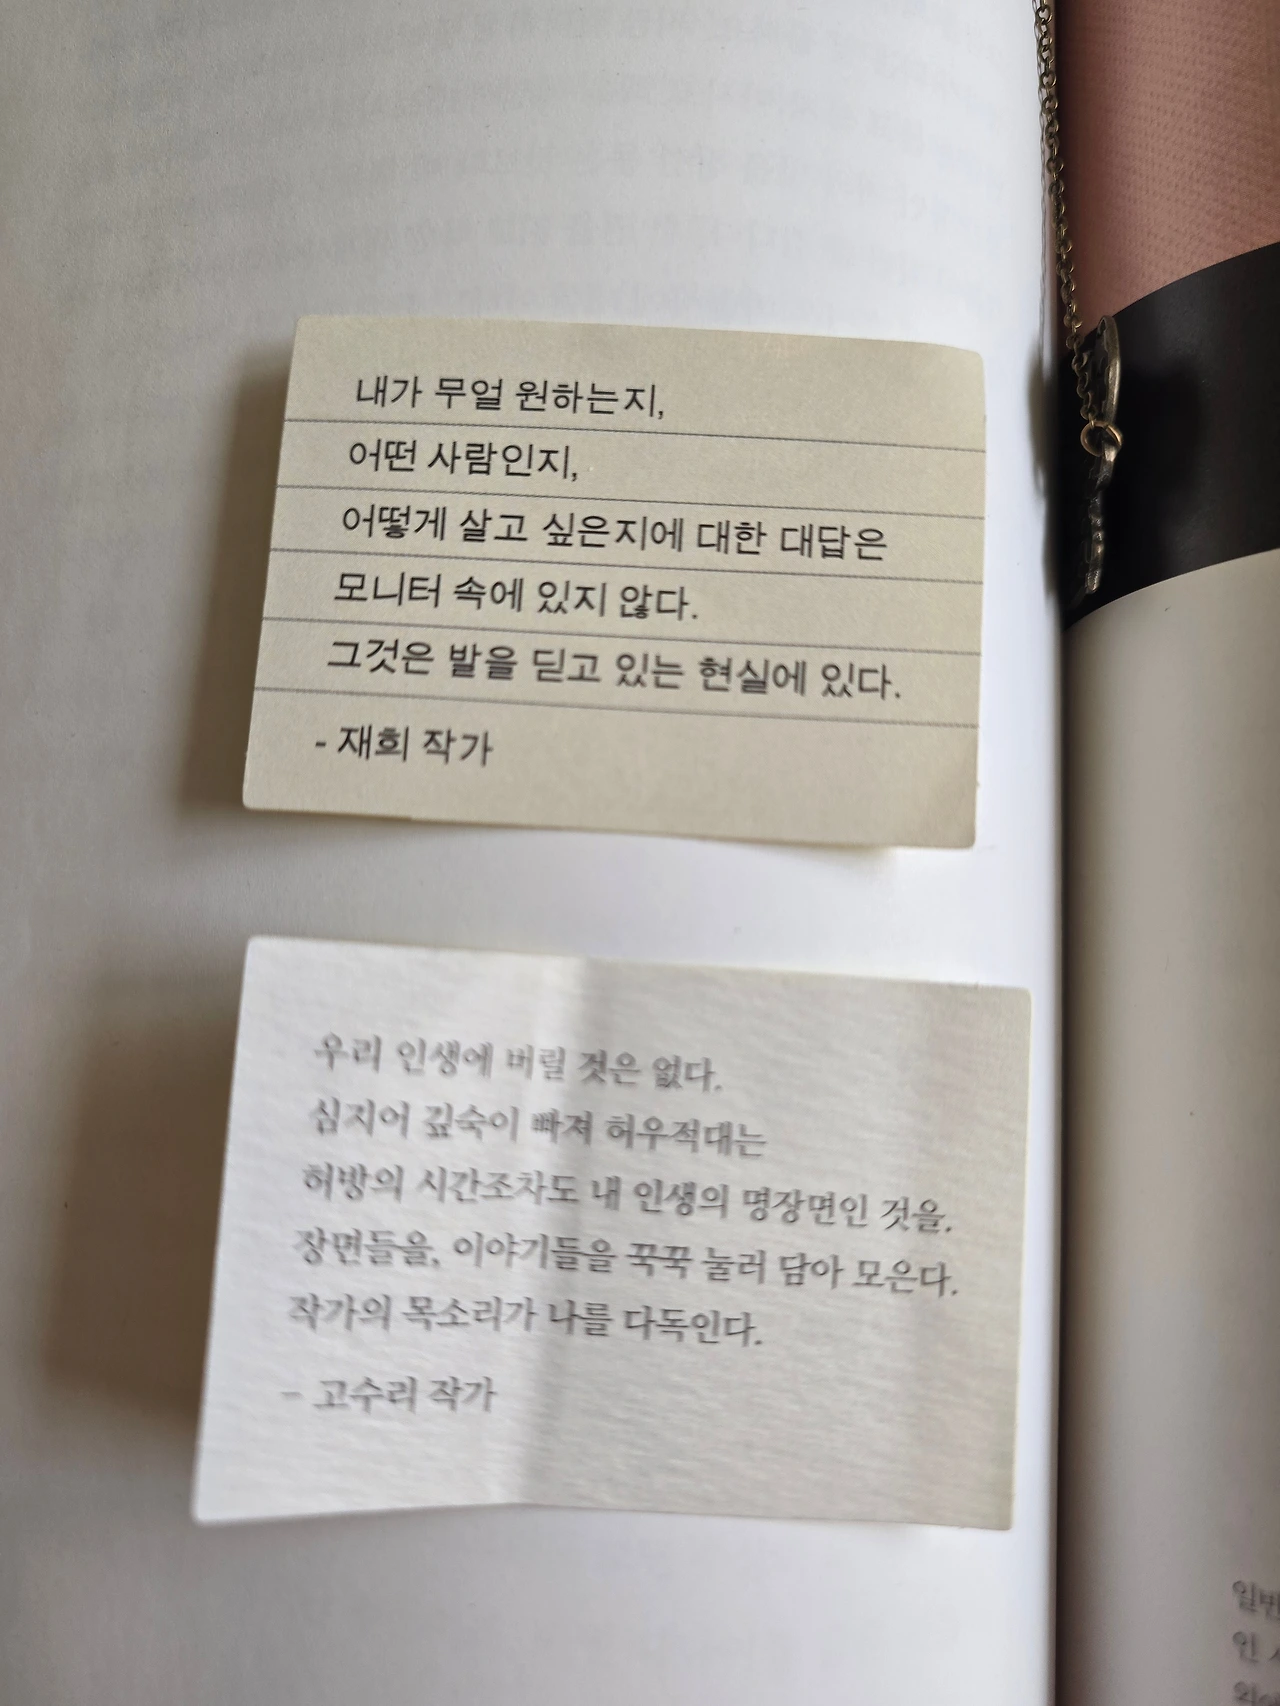 내가 무얼 원하는지,
어떤 사람인지,
어떻게 살고 싶은지에 대한 대답은
모니터 속에 있지 않다.
그것은 발을 딛고 있는 현실에 있다.
- 재희 작가
우리 인생에 버릴 것은 없다.
심지어 깊숙이 빠져 허우적대는
허방의 시간조차도 내 인생의 명장면인 것을.
장면들을, 이야기들을 꾹꾹 눌러 담아 모은다.
작가의 목소리가 나를 다독인다.
- 고수리 작가
인